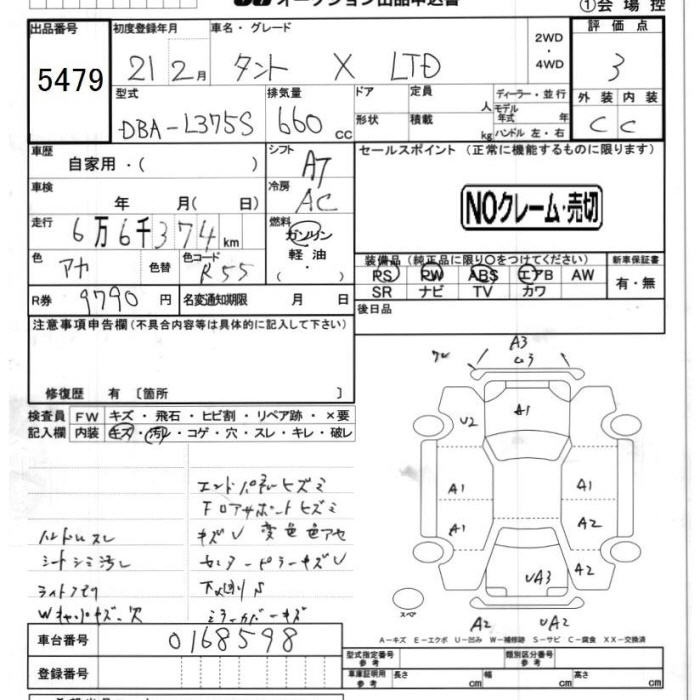 オークション出品申込書
①会場控
出品番号 5479
初度登録年月 21 2月
車名・グレード タント X LTD
2WD ・ 4WD
評価点 3
外装 内装
C C
型式 DBA-L375S
排気量 660 cc
ドア
形状
定員 人
積載 kg
ディーラー・並行
モデル年式 年
ハンドル 左・右
車歴 自家用・( )
シフト AT
セールスポイント (正常に機能するものに限ります)
NOクレーム・売切
車検 年 月( 日)
冷房 AC
走行 6万6千374km
燃料 ガソリン
軽油
・( )
色 アカ 色替
色コード R55
装備品 (純正品に限り○をつけてください)
PS PW ABS エアB AW
SR ナビ TV カワ
新車保証書
有・無
R券 9790 円
名変通知期限 月 日
後日品
注意事項申告欄 (不具合内容等は具体的に記入して下さい)
修復歴 有 〔箇所 〕
検査員記入欄
FW キズ・飛石・ヒビ割・リペア跡・×要
内装 キズ・汚レ・コゲ・穴・スレ・キレ・破レ
エンドパネルヒズミ
Fロアサポートヒズミ
ハンドルスレ
キズU 変色色アセ
シートシミ汚レ
センターピラーキズU
Wキャッパキズ・穴
下廻りS
ミラーカバーキズ
A3
U3
A1
U2
A1
A1
A1
A2
A2
UA3
A2
UA2
スペア
A-キズ E-エクボ U-凹み W-補修跡 S-サビ C-腐食 XX-交換済
車台番号 0168598
登録番号
型式指定番号 参考
類別区分番号 参考
車庫証明用 参考
長さ cm 幅 cm 高さ cm